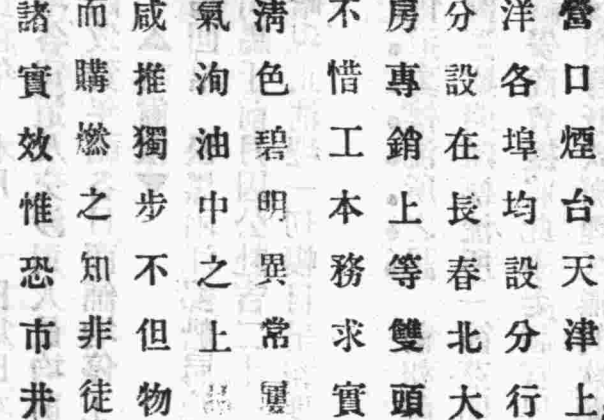 營口煙台天津上
洋各埠均設分行
分設在長春北大
房專銷上等雙頭
不惜工本務求實
清色碧明異常
氣洵油中之上
咸推獨步不但物
而購燃之知非徒
諸實效惟恐市井